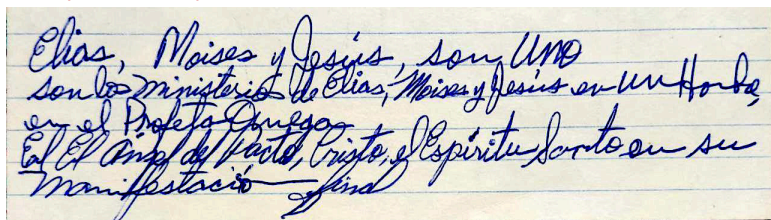 Elias, Moises y Jesús, son UNO
son los ministerios de Elias, Moises y Jesús en un Hombre,
en el Profeta Omega
Es El Angel del Pacto, Cristo, el Espíritu Santo en su
Manifestación final